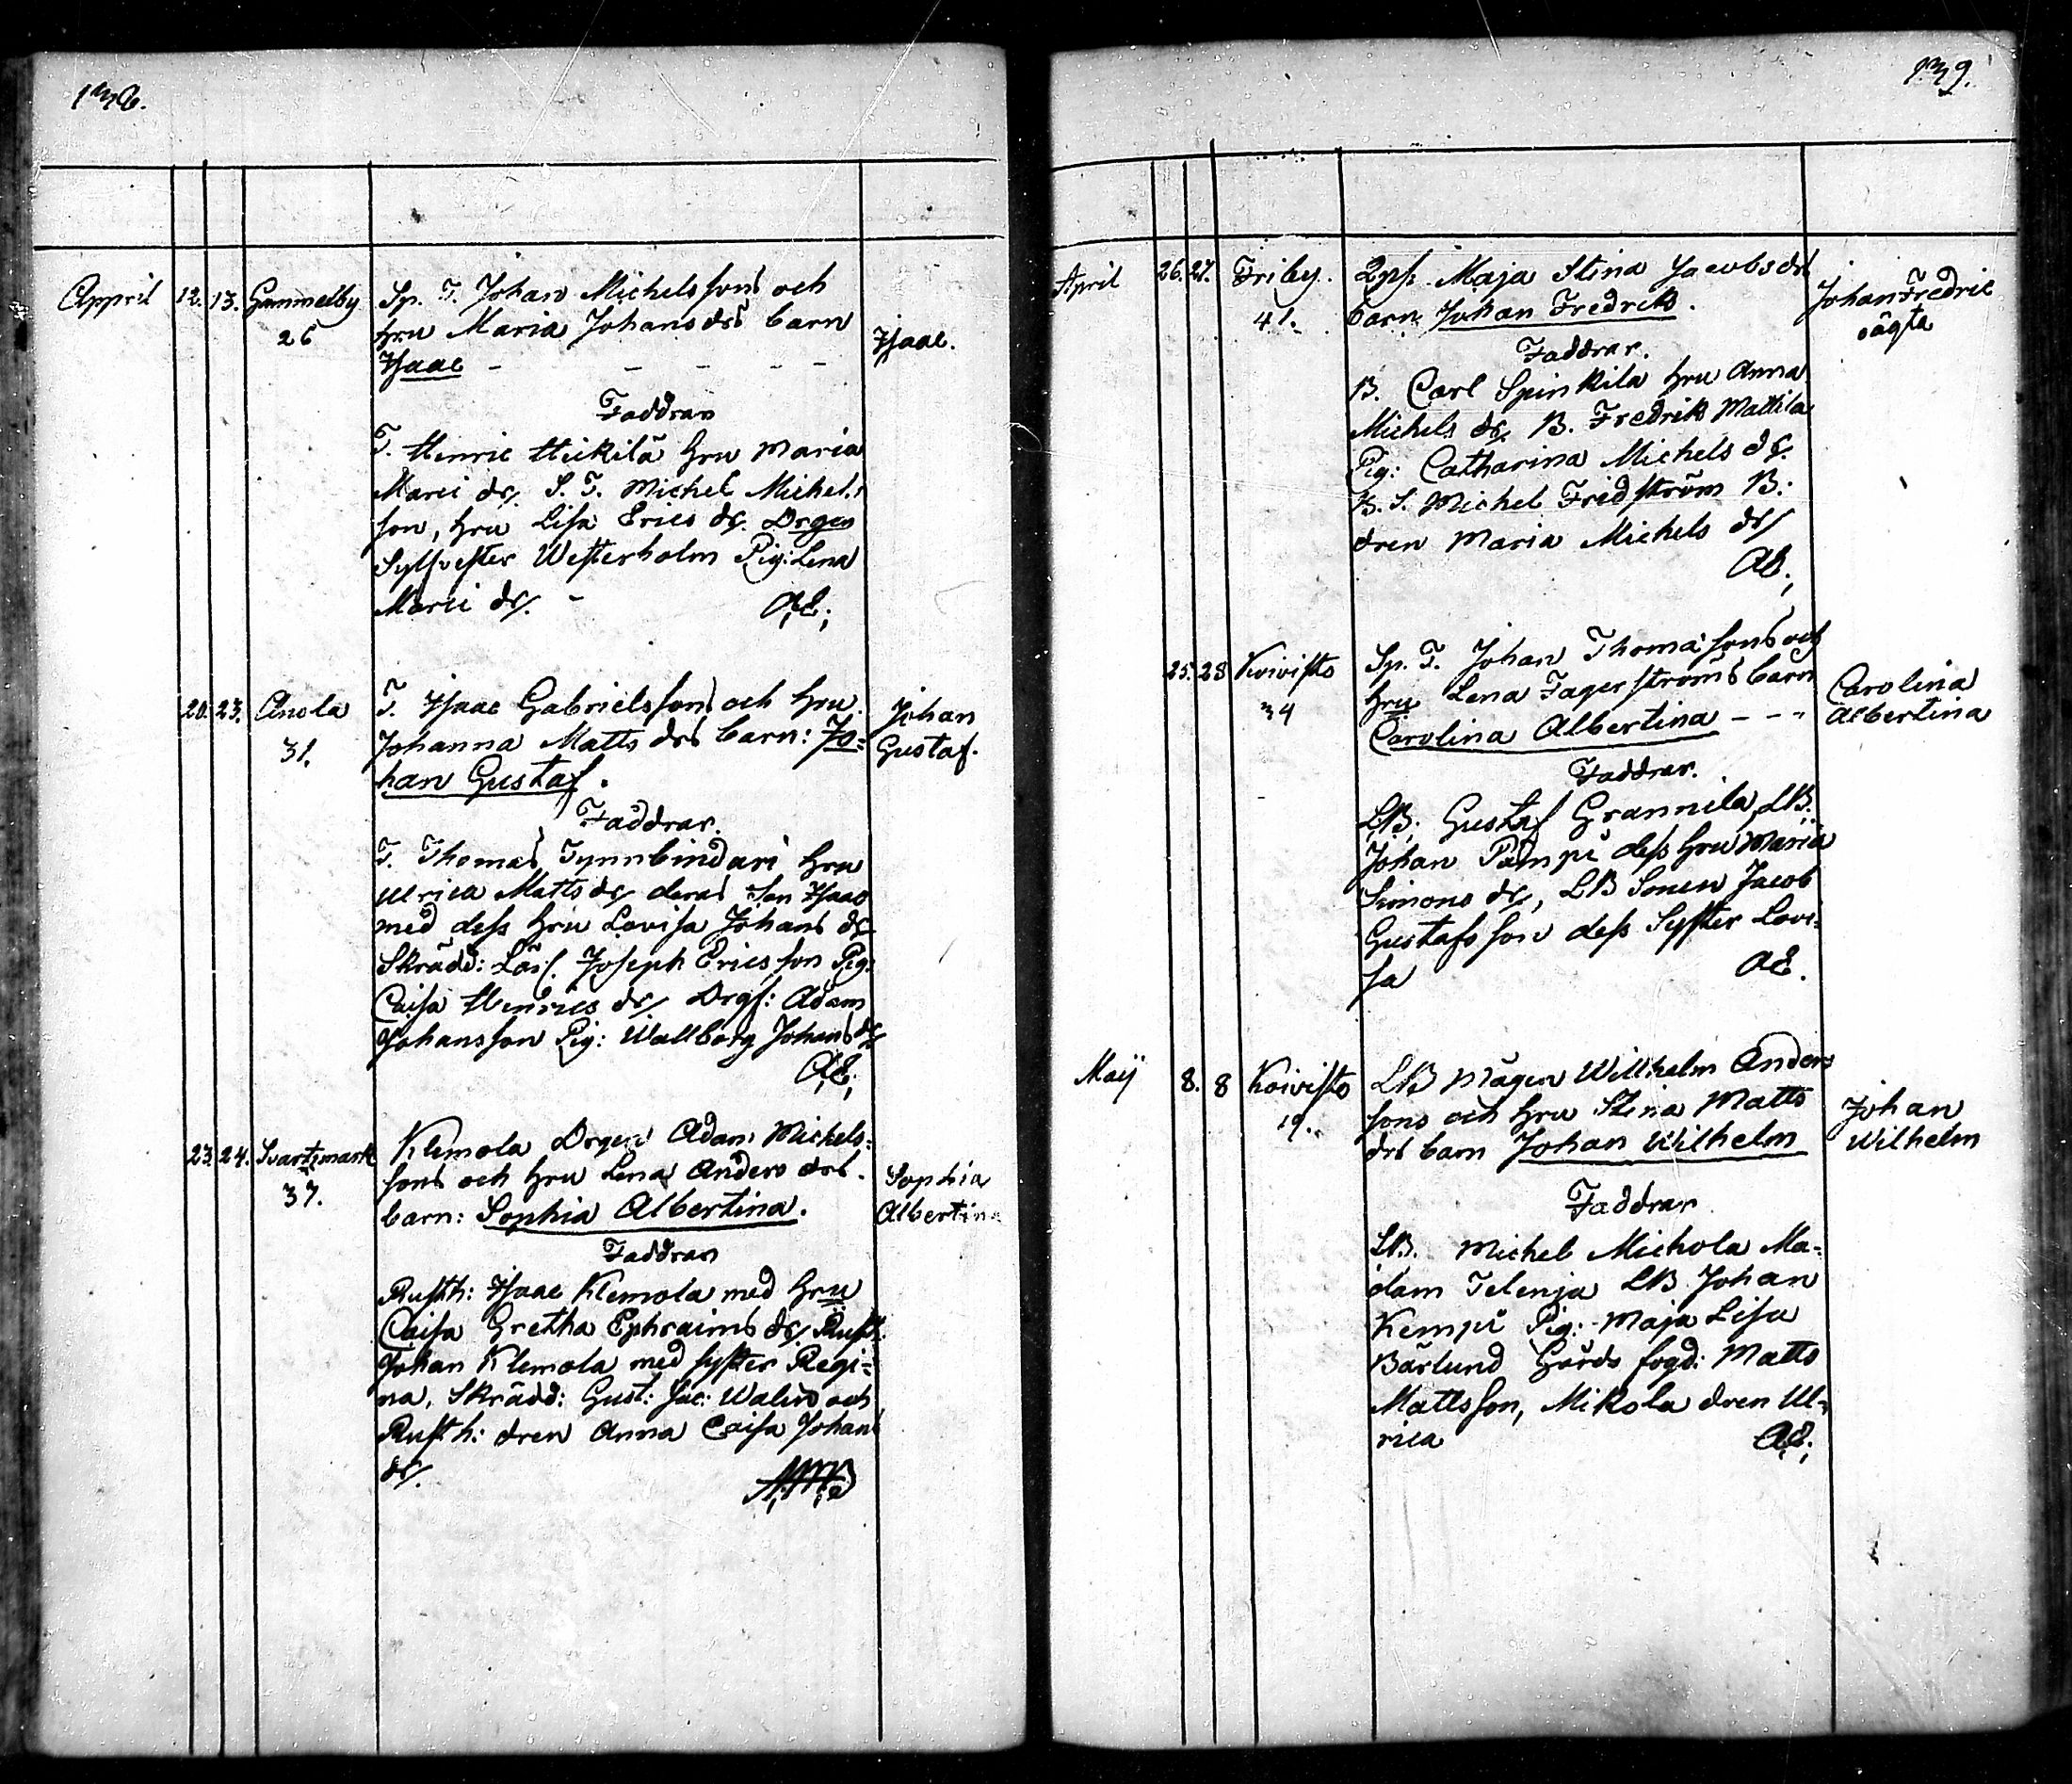 Appril 12. 13. Gammelby Sp. T. Johan Michelssons och
26 hru Maria Johansdrs barn Isaac.
Isaac - - - - -
Faddrar
T. Henric Heikilä hru Maria
Marci dr, S. T. Michel Michels:
son, hru Lisa Erics dr. Drgen
Sylvester Westerholm Pig: Lena
Marci dr. - AE;
20. 23. Anola T. Isaac Gabrielssons och hru Johan
31. Johanna Matts drs barn: Jo= Gustaf.
han Gustaf.
Faddrar.
T. Thomas Tynnbindari hru
Ulrica Matts dr deras Son Isaac
med dess hru Lovisa Johans dr
Skrädd: Joseph Ericsson Pig:
Caisa Henrics dr Drgs: Adam
Johansson Pig: Wallborg Johans dr
AE;
23. 24. Svartsmark Klemola Drgen Adam Michels=
37. sons och hru Lena Anders drs. Sophia
barn: Sophia Albertina. Albertina
Faddrar
Rusth: Isaac Klemola med hru
Caisa Gretha Ephraims dr, Rusth:
Johan Klemola med syster Regi=
na, Skrädd: Gust: Jac: Walin och
Rusth: dren Anna Caisa Johans
dr.
139.
April 26. 27. Friby. Maja Stina Jacobsdrs Johan Fredric
41. barn Johan Fredrik. oägta
Faddrar.
B. Carl Spinkila hru Anna
Michels dr, B. Fredrik Mattila
Pig: Catharina Michels dr.
B. S. Michel Fridström B:
dren Maria Michels dr
AE;
25. 28 Koivisto Sp. T. Johan Thomassons och
34 hru Lena Fagerströms barn Carolina
Carolina Albertina - - - Albertina
Faddrar.
LB. Gustaf Grannila, LB:
Johan Pämpi dess hru Maria
Simons dr, LB Sonen Jacob
Gustafsson dess Syster Lovi=
sa AE.
Maij 8. 8 Koivisto LB Mågen Willhelm Anders
19. sons och hru Stina Matts Johan
drs barn Johan Wilhelm Wilhelm
Faddrar
LB. Michel Michola Ma=
dam Telenja LB Johan
Kempi Pig: Maja Lisa
Bärlund Gårds fogd: Matts
Mattsson, Mikola dren Ul=
rica AE;